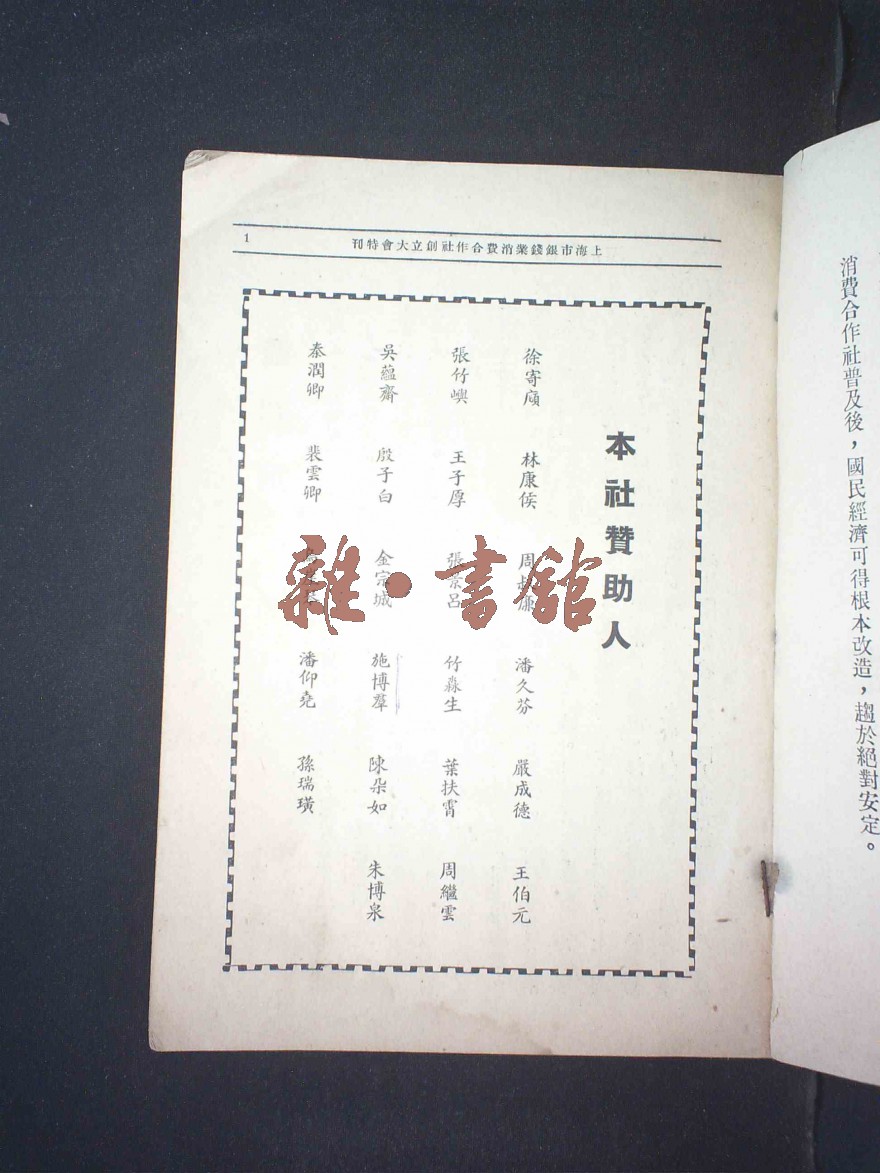 上海市銀錢業消費合作社創立大會特刊
1
本社贊助人
徐寄廎 林康侯 周 潘久芬 嚴成德 王伯元
張竹嶼 王子厚 張景呂 竹淼生 葉扶霄 周繼雲
吳蘊齋 殷子白 金宗城 施博羣 陳朵如 朱博泉
秦潤卿 裴雲卿 潘仰堯 孫瑞璜
雜·書館
消費合作社普及後，國民經濟可得根本改造，趨於絕對安定。